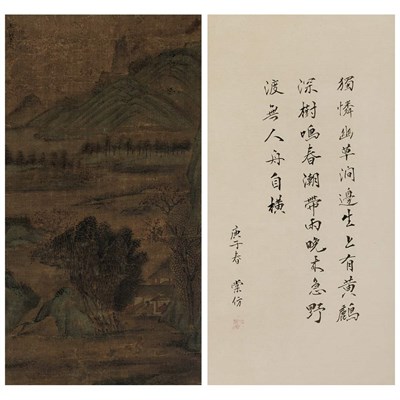 獨憐幽草澗邊生上有黃鸝
深樹鳴春潮帶雨晚来急野
渡無人舟自橫
庚子春